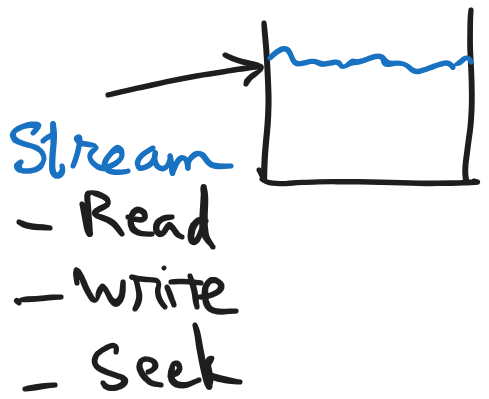 Stream
- Read
- Write
- Seek